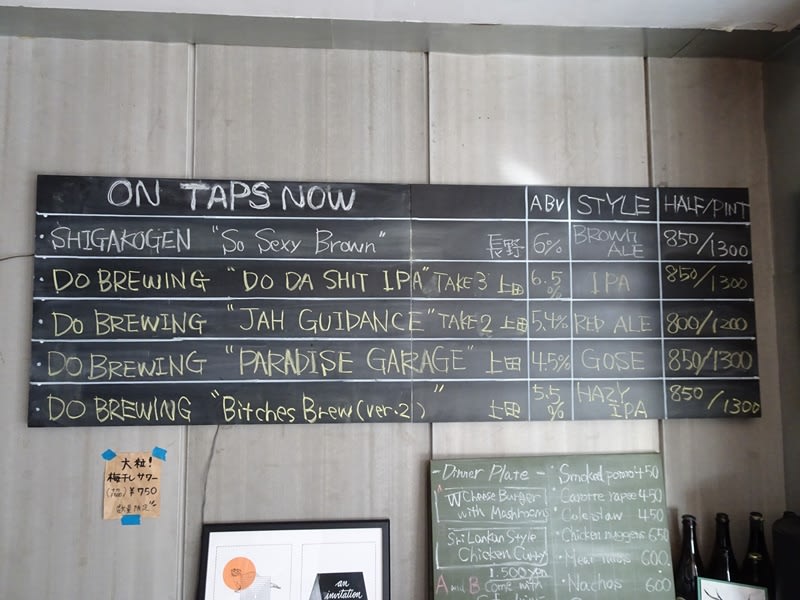 ON TAPS NOW ABV STYLE HALF/PINT
・SHIGAKOGEN "So Sexy Brown" 長野 6% BROWN ALE 850/1300
・DO BREWING "DO DA SHIT IPA" TAKE 3 上田 6.5% IPA 850/1300
・DO BREWING "JAH GUIDANCE" TAKE 2 上田 5.4% RED ALE 800/1200
・DO BREWING "PARADISE GARAGE" 上田 4.5% GOSE 850/1300
・DO BREWING "Bitches Brew (ver.2)" 上田 5.5% HAZY IPA 850/1300
大粒!
梅干しサワー
¥750
数量限定
- Dinner Plate -
A
W Cheese Burger
with Mashrooms
Sri Lankan Style
Chicken Curry
1.500yen
A and B Come with
・Smoked potato 450
・Carotte rapee 450
・Coleslaw 450
・Chicken nuggets 650
600
・Nachos 600
an
invitation